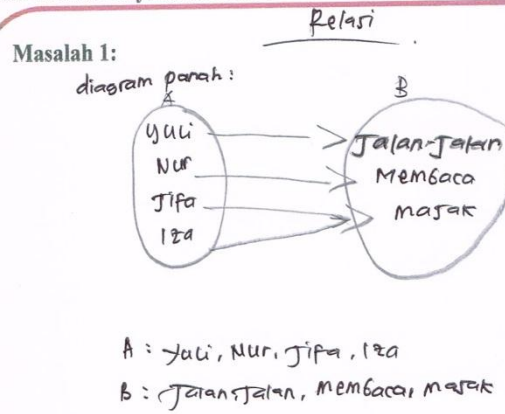 Relasi
Masalah 1:
diagram panah:
A
B
Yuli
Jalan-Jalan
Nur
Membaca
Jifa
masak
Iza
A : Yuli, Nur, Jifa, Iza
B : Jalan-Jalan, membaca, masak